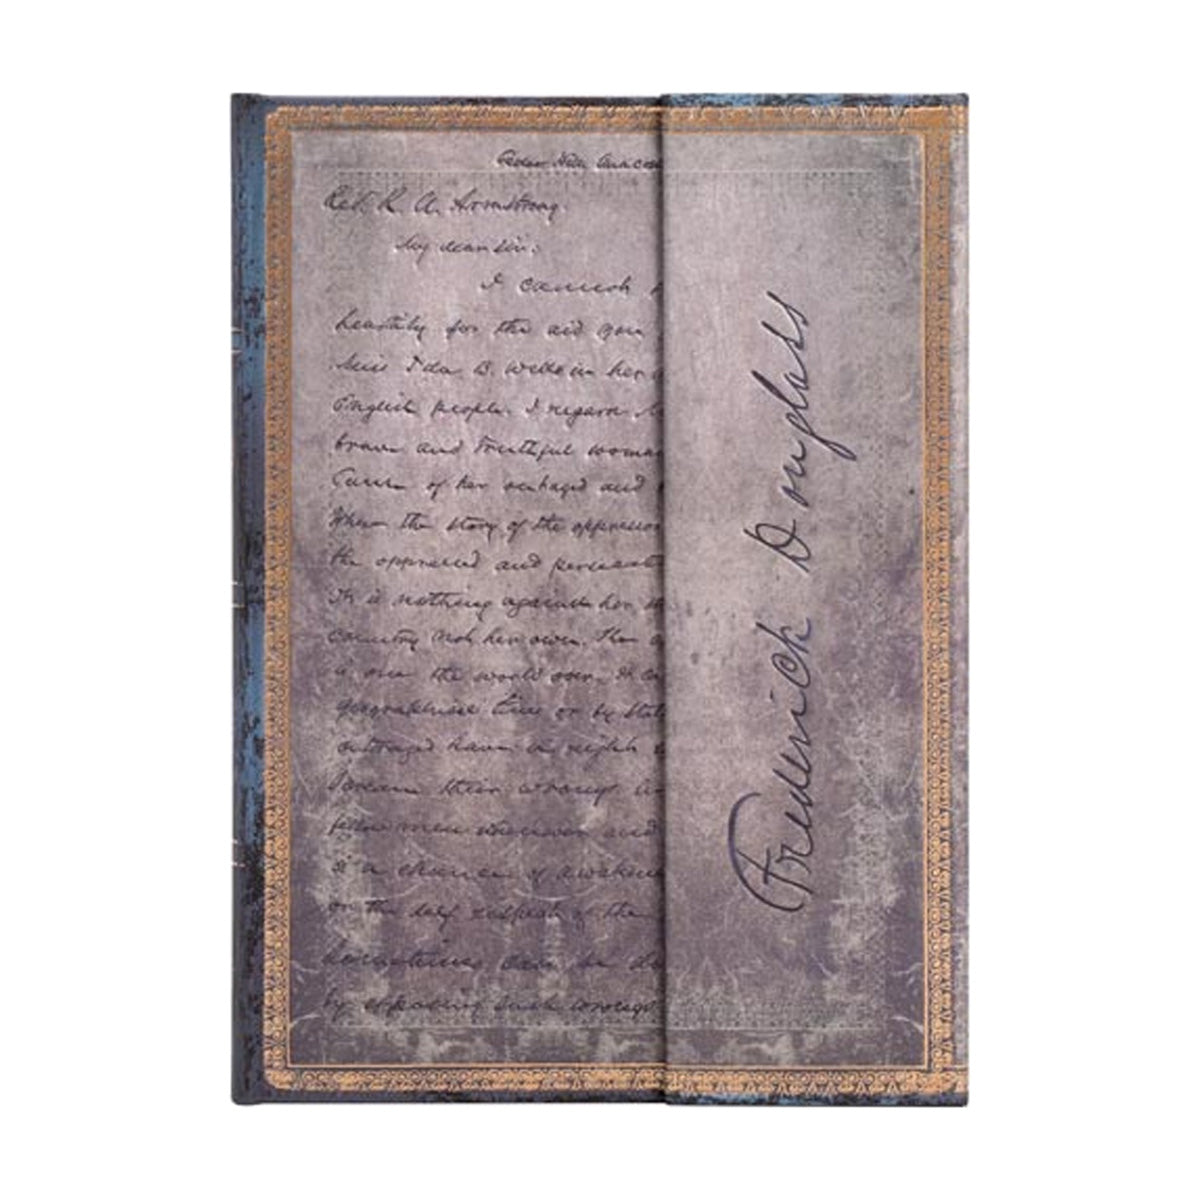 Cedar Hill Anacos
Rev. R. A. Armstrong.
My dear sir:
I cannot
heartily for the aid you
Miss Ida B. Wells in her
English people. I regard
brave and truthful woman
Cause of her outraged and
When the story of the oppressor
the oppressed and persecut
It is nothing against her,
country not her own. The
is over the world over. It
geographical line or by
outraged have a right
their wrongs
men wherever and
is a chance of awaken
on the self respect of the
sometimes can be
by exposing such wrongs
Frederick Douglass